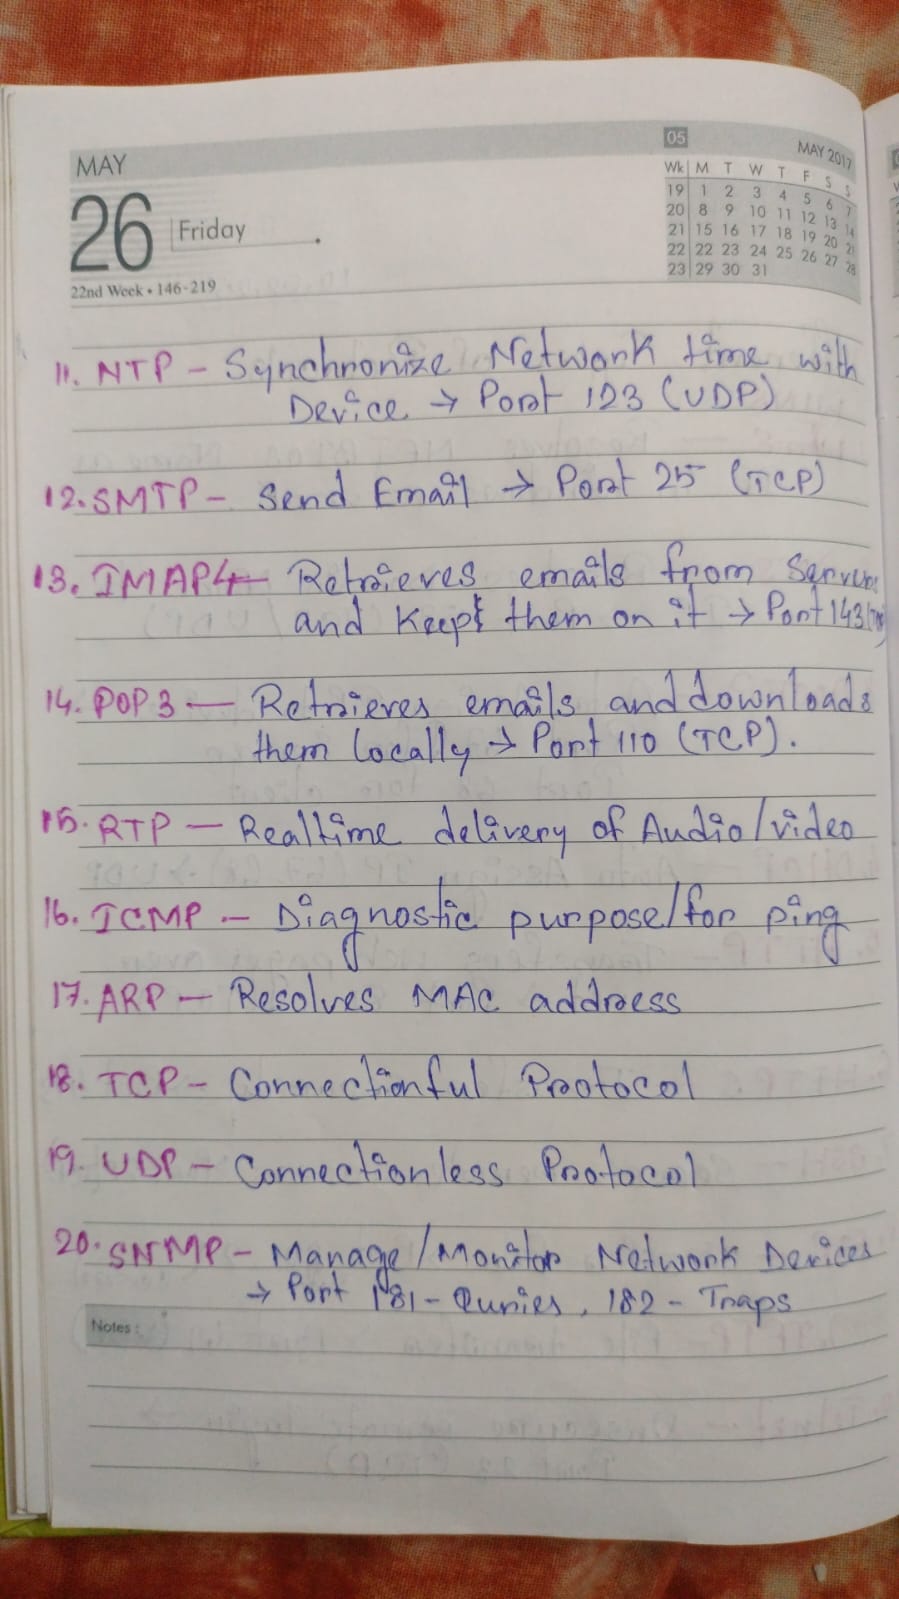 MAY
26
Friday
22nd Week • 146-219
05
MAY 2017
Wk M T W T F S S
19 1 2 3 4 5 6 7
20 8 9 10 11 12 13 14
21 15 16 17 18 19 20 21
22 22 23 24 25 26 27 28
23 29 30 31
11. NTP - Synchronize Network time with
Device → Port 123 (UDP)
12. SMTP - Send Email → Port 25 (TCP)
13. IMAP4 - Retrieves emails from Server
and Kept them on it → Port 143
14. POP3 - Retrieves emails and downloads
them locally → Port 110 (TCP).
15. RTP - Realtime delivery of Audio/video
16. ICMP - Diagnostic purpose/for ping
17. ARP - Resolves MAC address
18. TCP - Connectionful Protocol
19. UDP - Connectionless Protocol
20. SNMP - Manage/Monitor Network Devices
→ Port 181 - Quries, 182 - Traps
Notes :